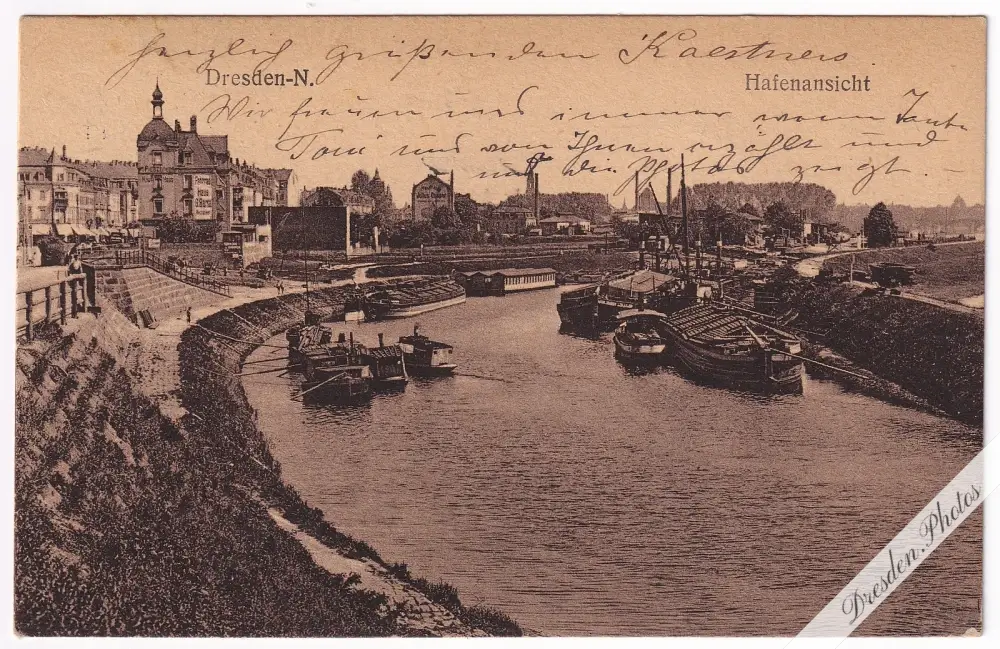 herzlich grüßenden Kaestners
Dresden-N.
Hafenansicht
Wir freuen uns immer wenn Tante
Toni uns von Ihnen erzählt und
uns die Photos zeigt. -
Dresden.Photos